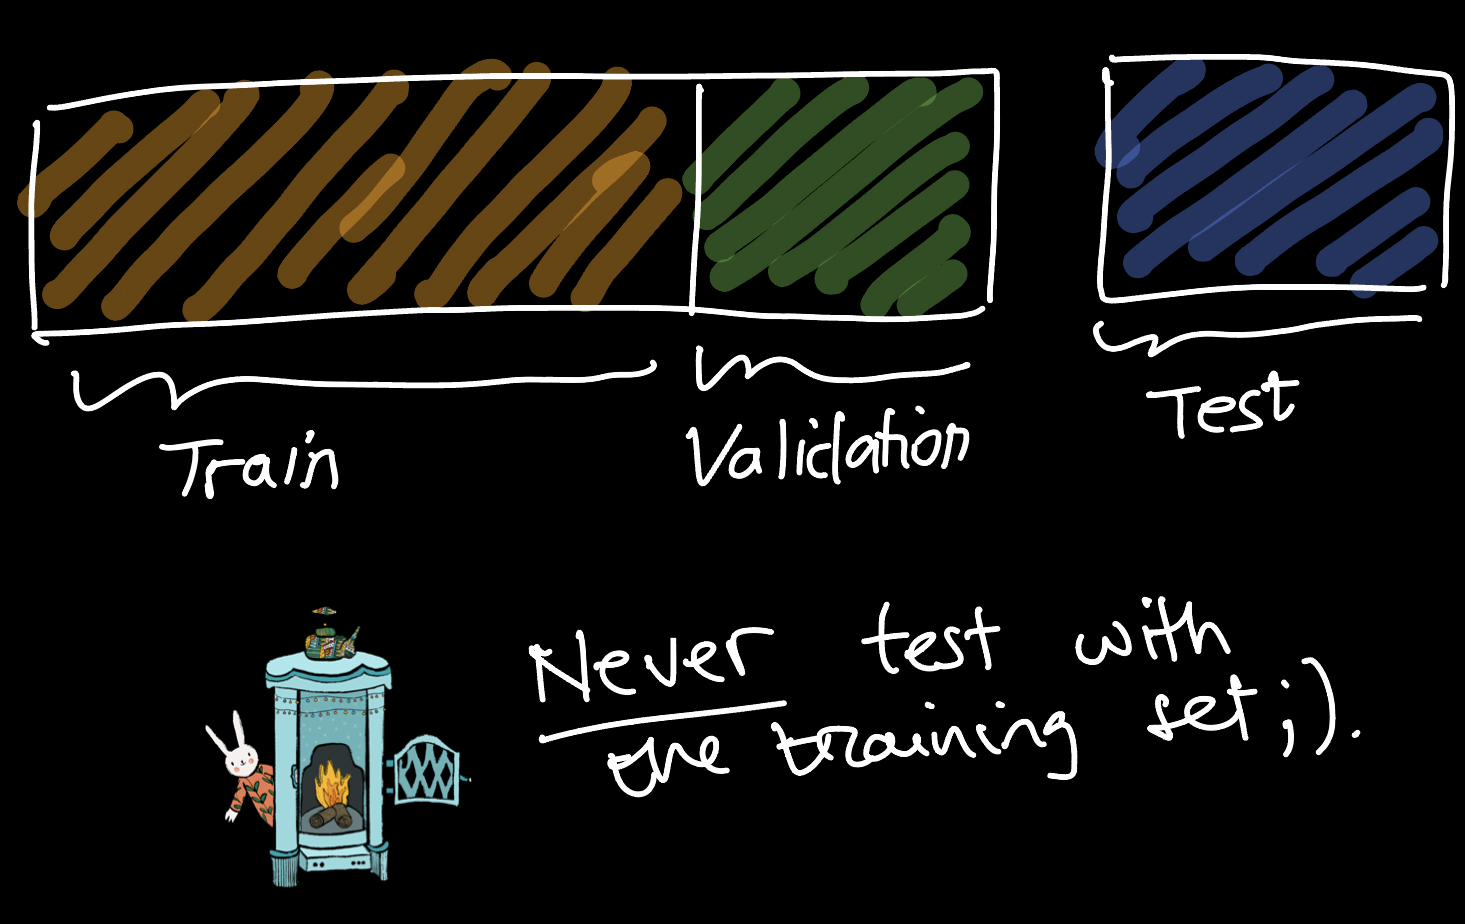 Train
Validation
Test
Never test with
the training set ;).